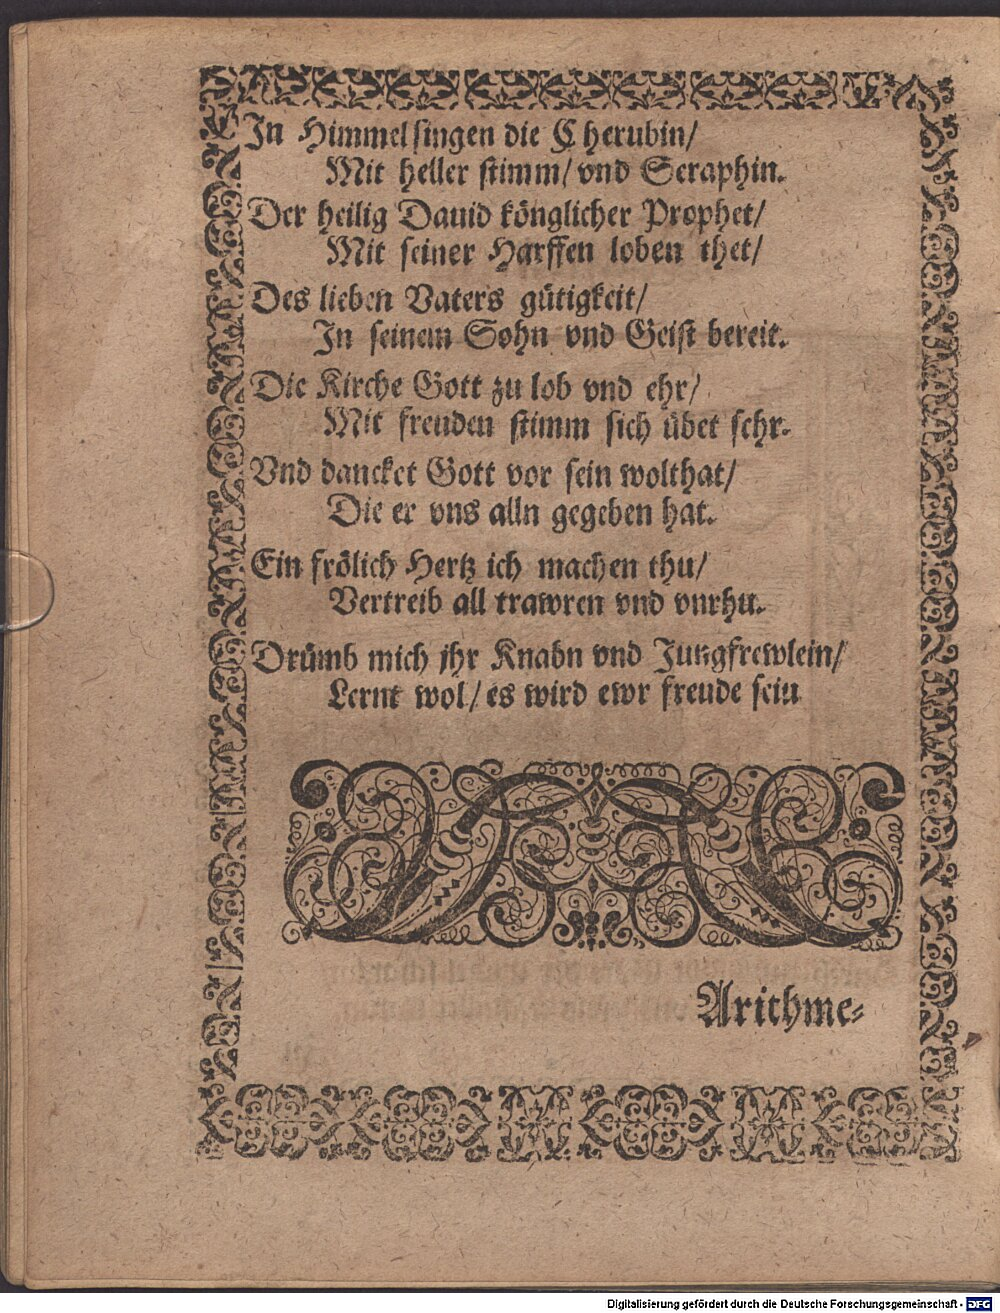 In Himmel singen die Cherubin/
Mit heller stimm/ vnd Seraphin.
Der heilig Dauid könglicher Prophet/
Mit seiner Harffen loben thet/
Des lieben Vaters gütigkeit/
In seinem Sohn vnd Geist bereit.
Die Kirche Gott zu lob vnd ehr/
Mit freuden stimm sich übet sehr.
Vnd dancket Gott vor sein wolthat/
Die er vns alln gegeben hat.
Ein frölich Hertz ich machen thu/
Vertreib all trawren vnd vnrhu.
Drümb mich jhr Knabn vnd Jungfrewlein/
Lernt wol/ es wird ewr freude sein
Arithme-
Digitalisierung gefördert durch die Deutsche Forschungsgemeinschaft - DFG